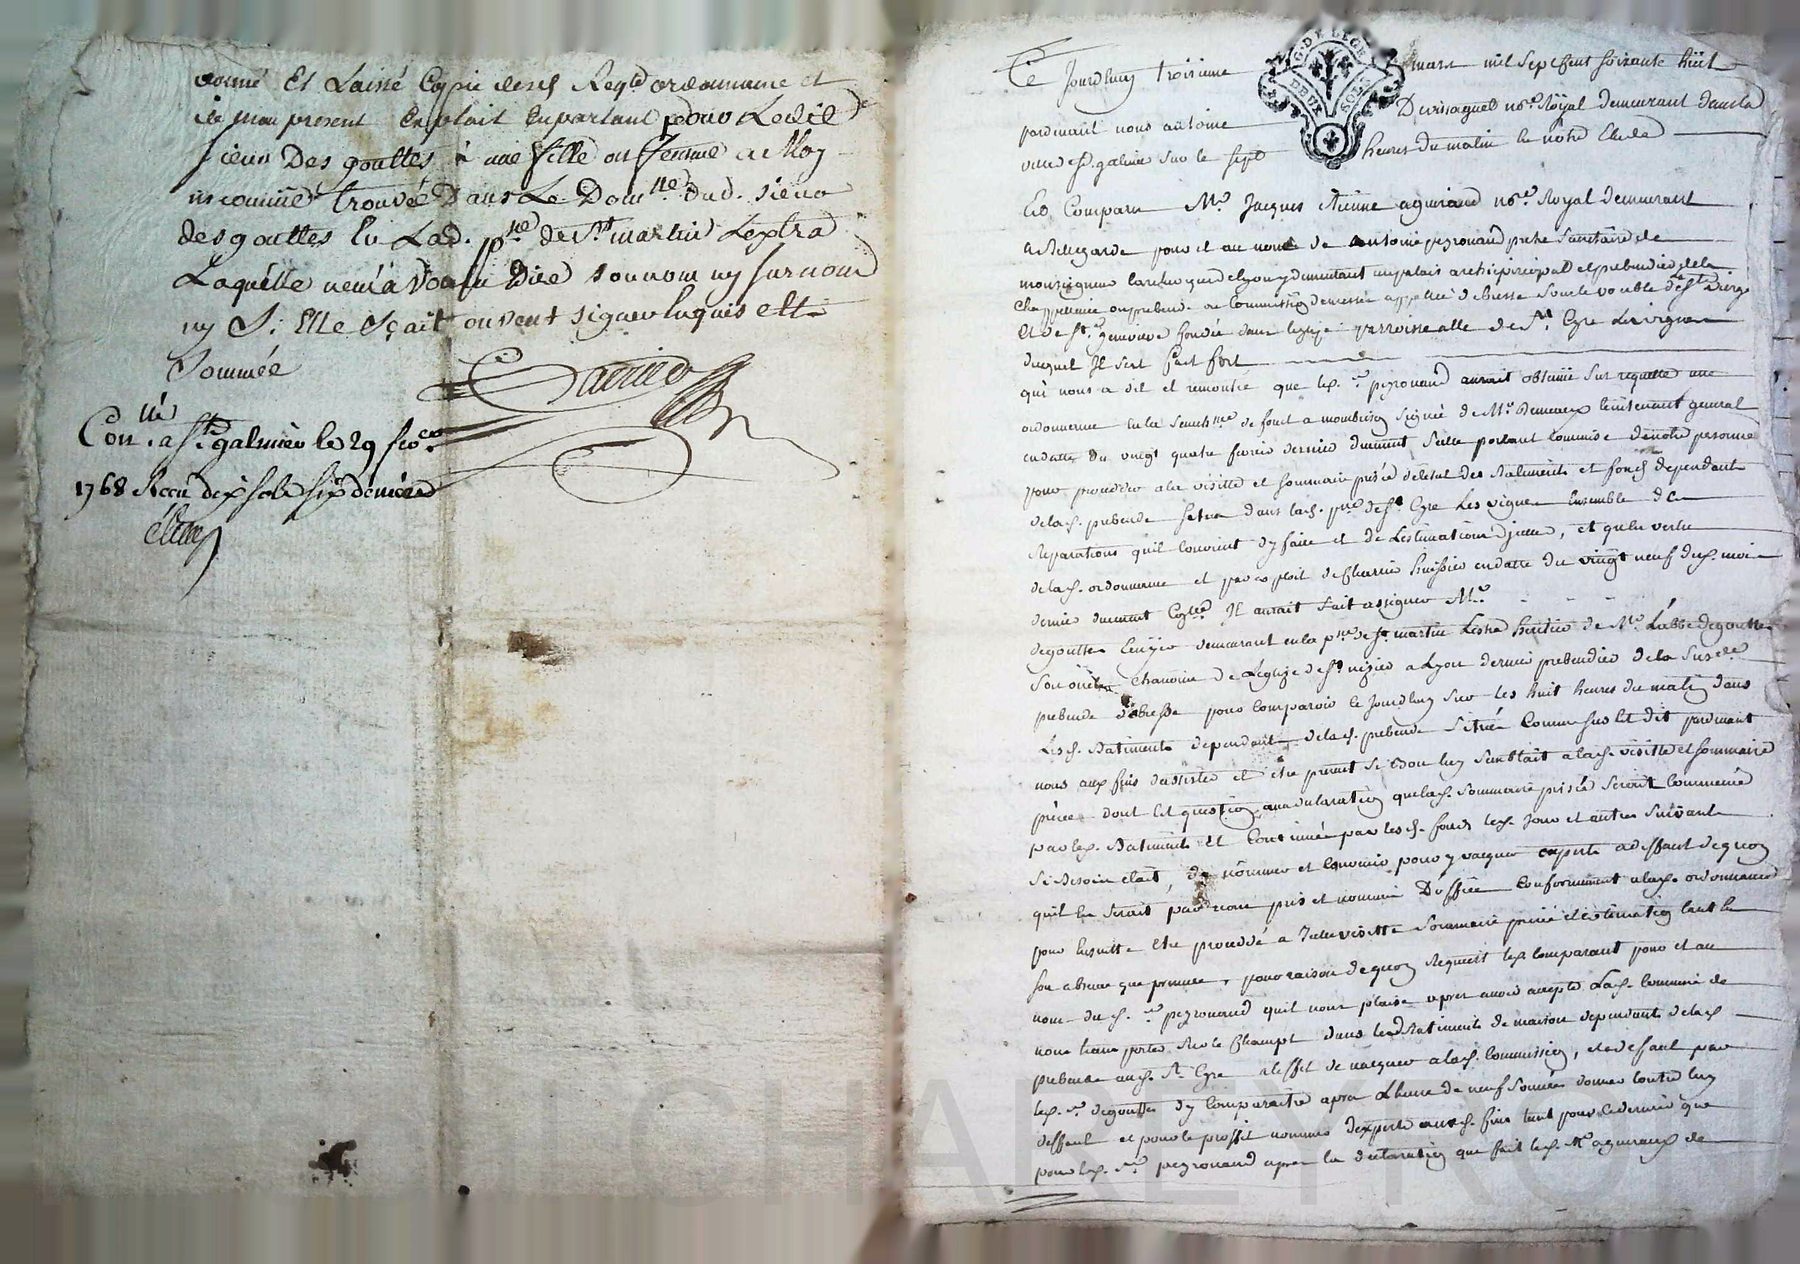 donné Et Laissé Copie desd Reqte ordonnance et
de mon present Exploit En parlant pour Ledit
sieur Des gouttes à une fille ou femme a Moy
inconnüe trouvée Dans Le Domlle dud. sieur
desgouttes En Lad. psse de St martin Lextra
Laquelle ne m'a Voulu Dire son nom ny surnom
ny Si Elle Sçait ou veut signer Enquis ett
Sommée
Conllé a St galmier le 29 fer
1768 Recu dix sols six deniers
Ce Jourdhuy troisieme mars mil sept Cent soixante huit
pardevant nous antoine Dursaquet nore Royal demeurant dans la
ville St galmier sur le sept heures du matin en notre Etude
Est Comparu Me Jacques Etienne aguiraud nore Royal demeurant
a Bellegarde pour et au nom de antoine peyronaud pretre secretaire de
monseigneur larcheveque de Lyon y demeurant au palais archiepiscopal et prebendier de la
Chappellenie ou prebende ou Commission de messes appellée de Busse sous le vocable de la Ste Vierge
Et de Ste genevieve fondée dans leglize parroissialle de St Cyre Les vignes
duquel Il sest fait fort
qui nous a dit et remontré que led. sr peyronaud aurait obtenu sur requette une
ordonnance en la senechssée de forest a montbrison signée de Mr lieutenant general
en datte du vingt quatre fevrier dernier duement Scellé portant Commise de notre personne
pour proceder a la visitte et sommaire prisée de letat des Batiments et fonds dependants
de lad. prebende situés dans lad. psse de St Cyre Les vignes Ensemble des
Reparations quil Convient dy faire et de Lestimation diceux, et qu'en vertu
de lad. ordonnance et par exploit de huissier en datte du vingt neuf dud. moi
dernier duement Contllé Il aurait fait assigner Mr
degouttes Ecuyer demeurant en la psse de St martin Lestra heritier de Mr L'abbé degouttes
son oncle Chanoine de Leglize de St nizier a Lyon dernier prebendier de la susdte
prebende debusse pour Comparoir Ce Jourdhuy sur les huit heures du matin dans
Lesd. Batiments dependants de lad. prebende située Comme sus Est dit pardevant
nous aux fins dassister et etre present si Bon luy semblait a lad. visitte et sommaire
prisée dont Est question avec declaration que lad. sommaire prisée serait Commencée
par led. Batiments Et Continuée par lesd. fonds led. Jour et autres suivants
si Besoin etait, de nommer et Convenir pour y vacquer experts a deffaut de quoy
quil En serait par nous pris et nommé D'office Conformement a lad. ordonnance
pour Ensuitte Etre procedé a Icelle visitte sommaire prisée et estimation tant En
son absence que presence, pour raison de quoy Requiert led. Comparant pour et au
nom dud. sr peyronaud quil nous plaise apres avoir accepté Lad. Commise de
nous transporter sur le Champt dans lesd Batiments de maison dependants de lad.
prebende aud. St Cyre a leffet de vacquer a lad. Commission, et a deffaut par
led. sr degouttes dy Comparaitre apres Lheure de neuf sonnée donner Contre luy
deffaut et pour le proffit nommer dexperts auxd. fins tant pour Ce dernier que
pour led. sr peyronaud apres la declaration que fait led. Me aguiraud de
G. DE LEON
DEUX SOLS
CHAREYRON